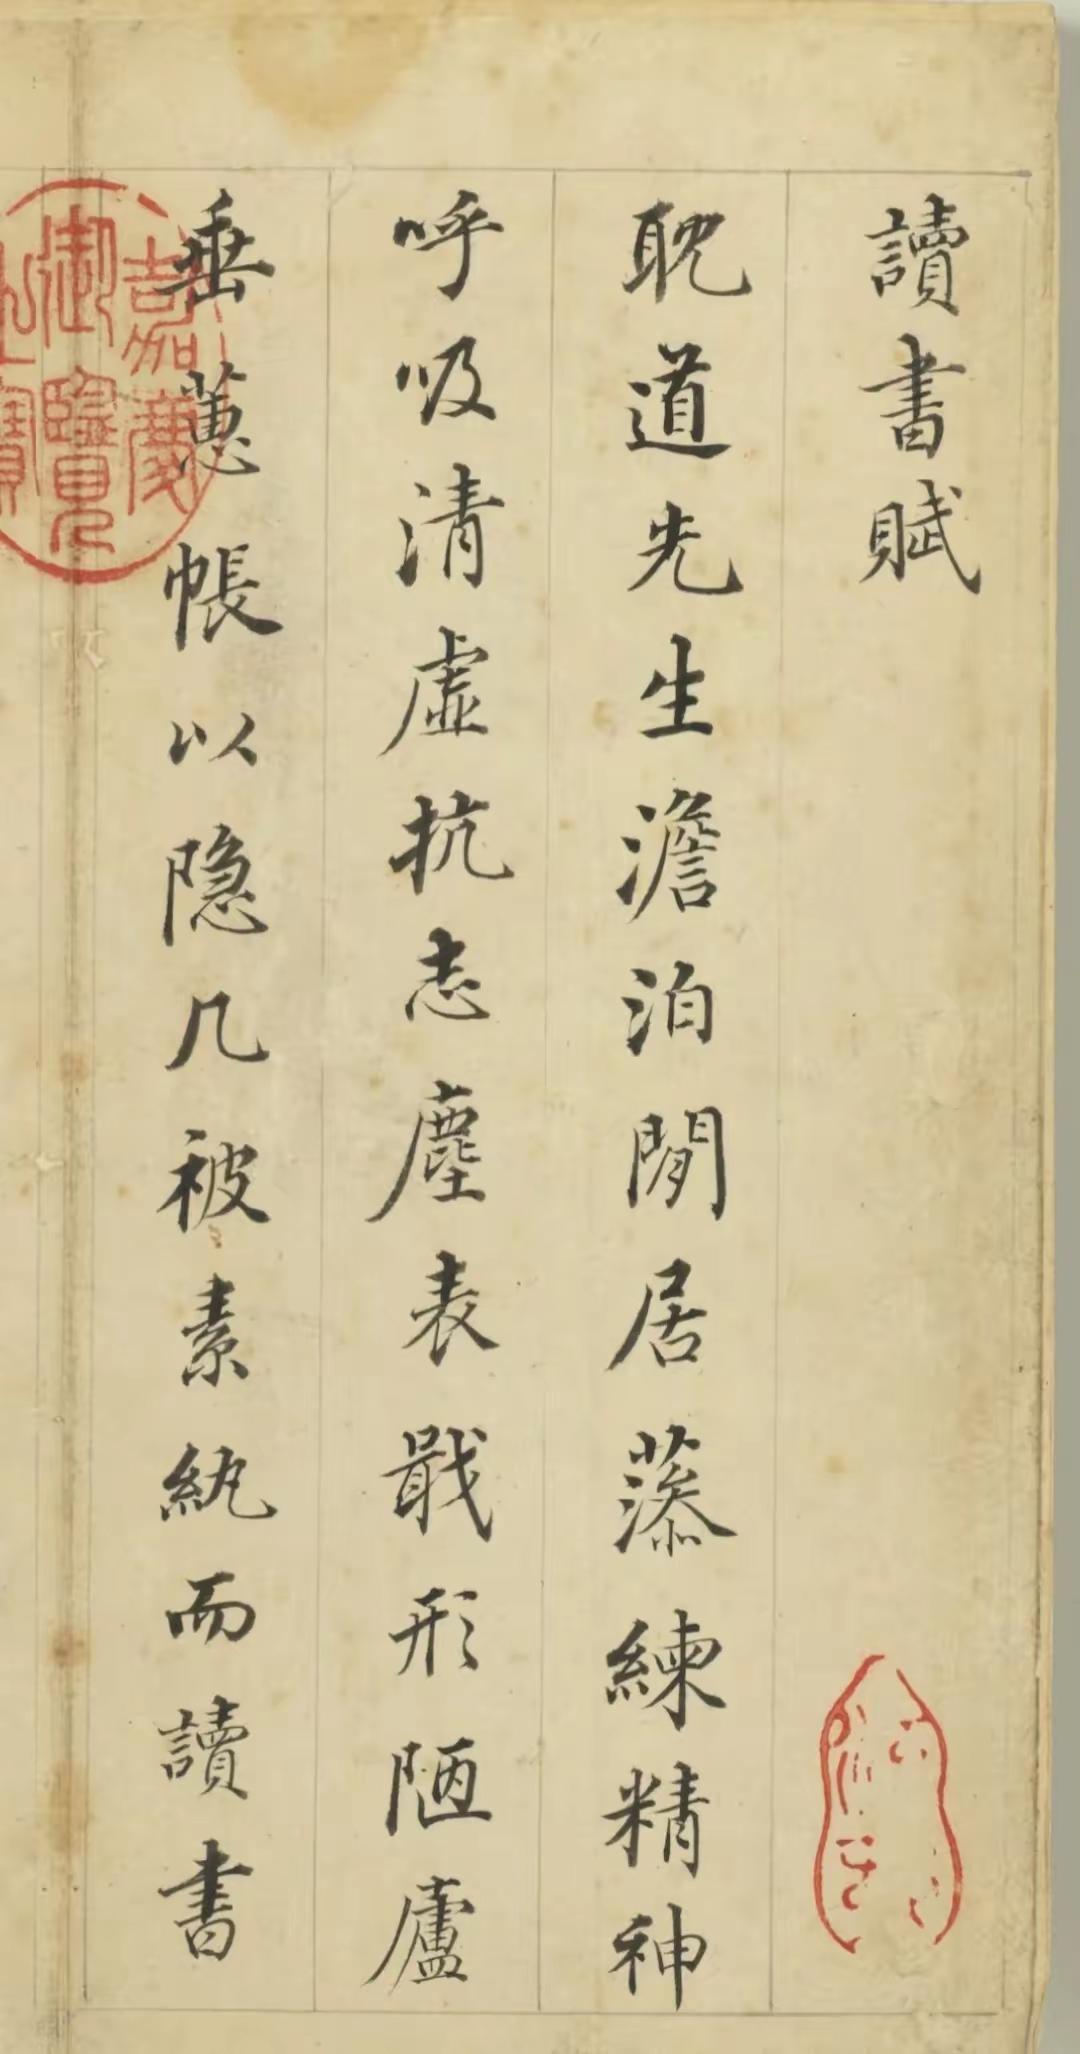 讀書賦
耽道先生澹泊閒居藻練精神
呼吸清虛抗志塵表戢形陋廬
垂蕙帳以隱几被素紈而讀書
嘉慶
御覽
之寶